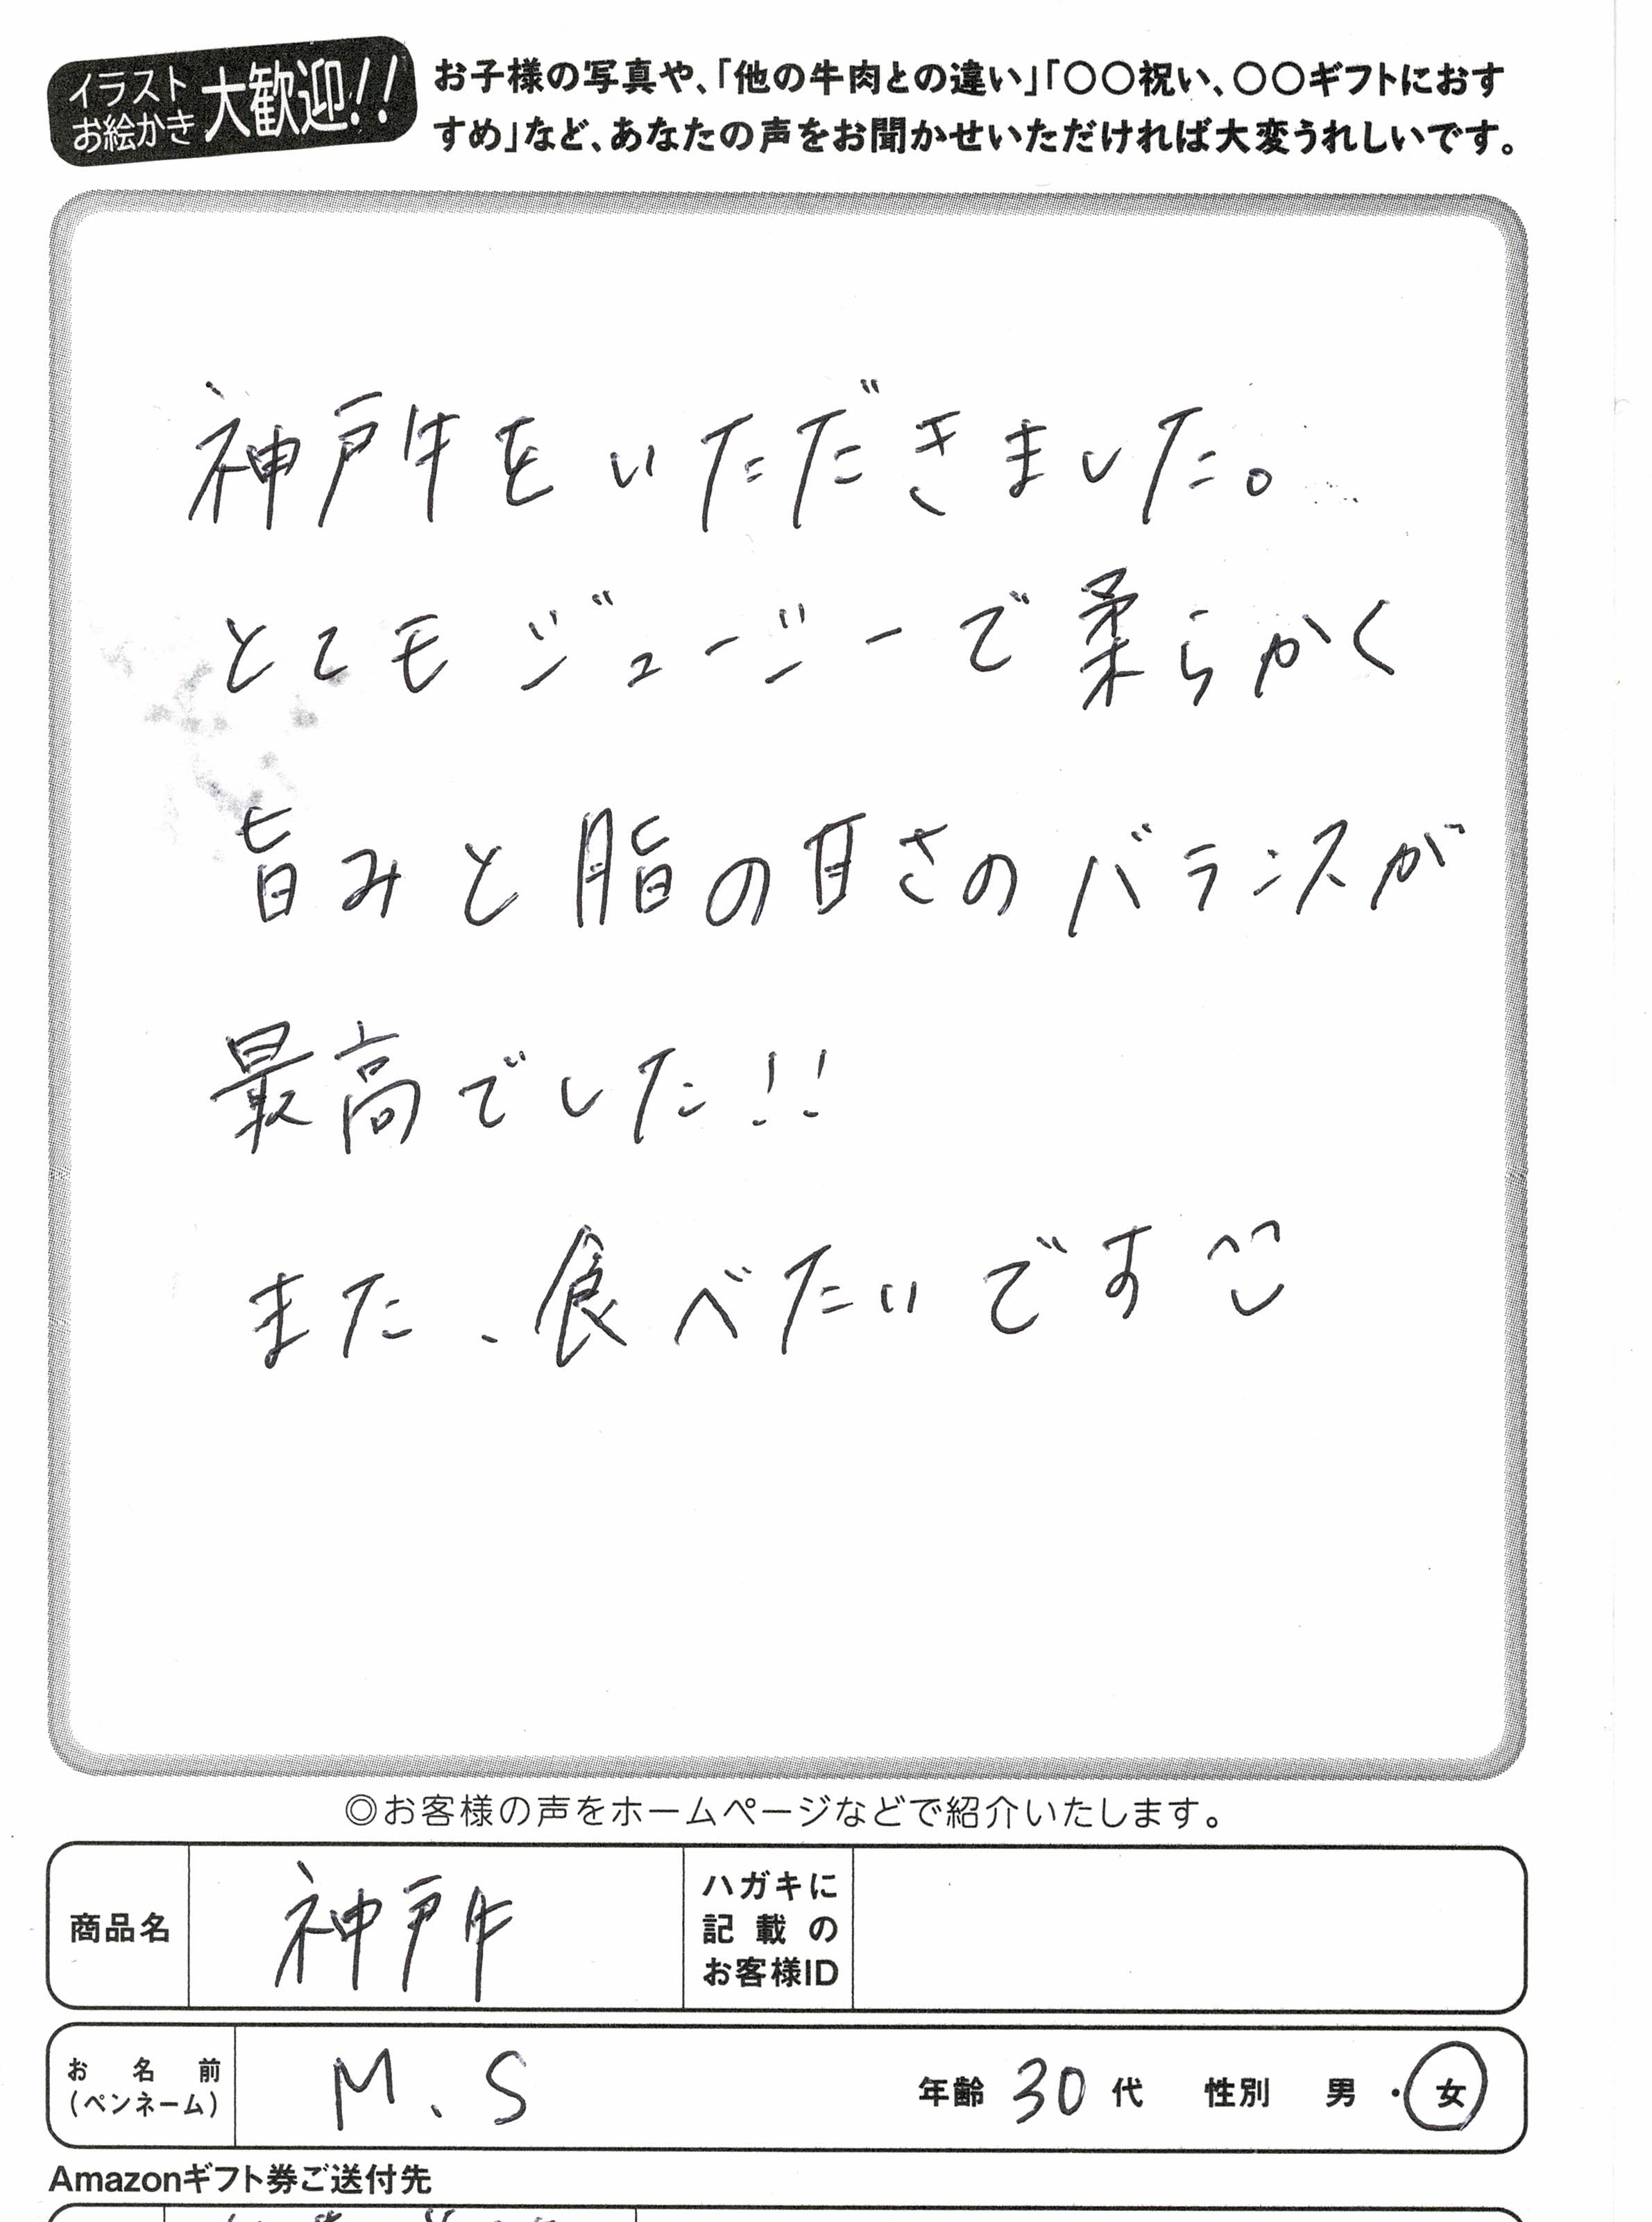 イラスト
お絵かき
大歓迎!!
お子様の写真や、「他の牛肉との違い」「〇〇祝い、〇〇ギフトにおす
すめ」など、あなたの声をお聞かせいただければ大変うれしいです。
神戸牛をいただきました。
とてもジューシーで柔らかく
旨みと脂の甘さのバランスが
最高でした!!
また、食べたいです
◎お客様の声をホームページなどで紹介いたします。
商品名 神戸牛 ハガキに
記載の
お客様ID
お名前
(ペンネーム)
M.S 年齢 30代 性別 男・女
Amazonギフト券ご送付先